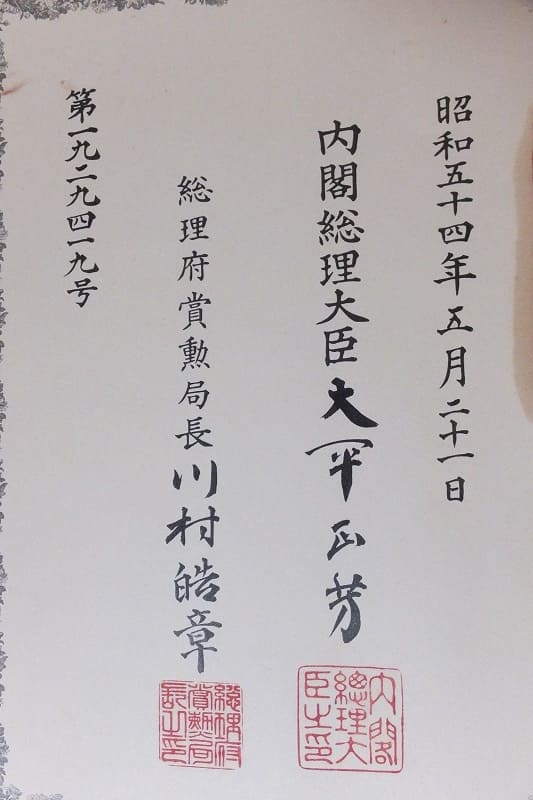 昭和五十四年五月二十一日
内閣総理大臣大平正芳
内閣總理大臣之印
総理府賞勲局長川村皓章
總理府賞勳局長之印
第一九二九四一九号